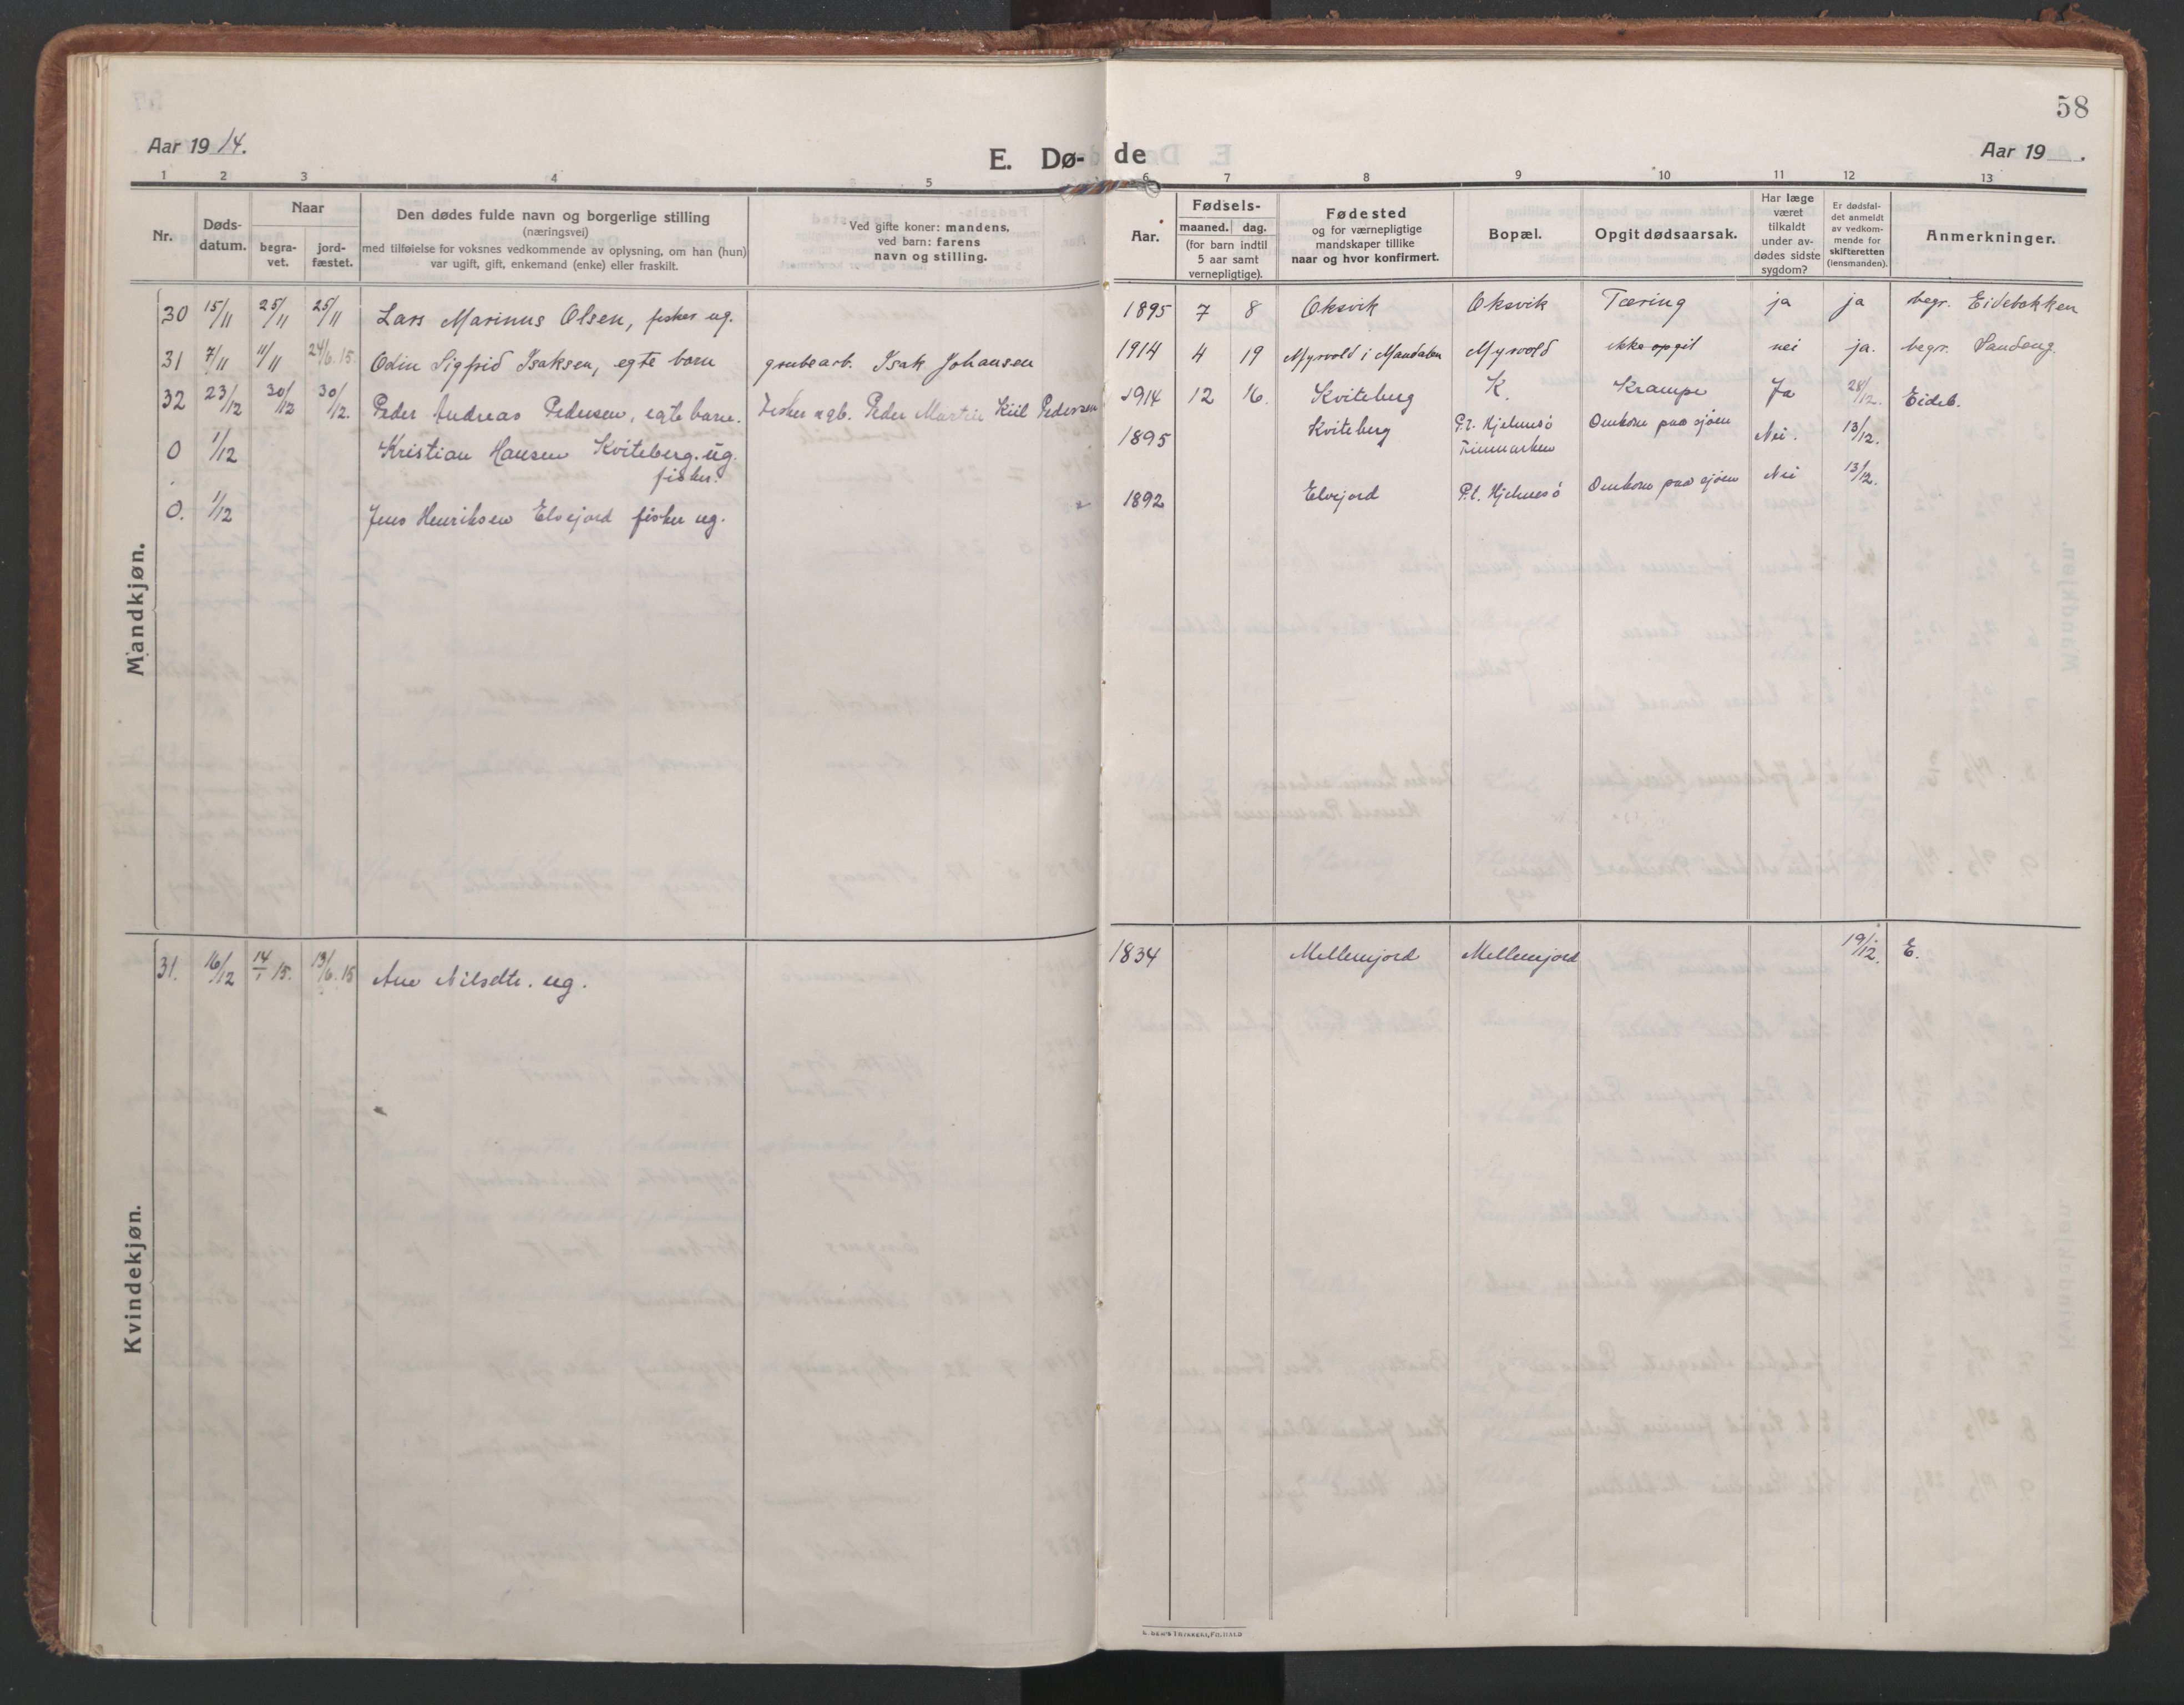 58
Aar 1914.
E. Dø- de
Aar 19 .
1 2 3 4 5 6 7 8 9 10 11 12 13
Nr.
Døds-
datum.
Naar
begra-
vet.
jord-
fæstet.
Den dødes fulde navn og borgerlige stilling
(næringsvei)
med tilføielse for voksnes vedkommende av oplysning, om han (hun)
var ugift, gift, enkemand (enke) eller fraskilt.
Ved gifte koner: mandens,
ved barn: farens
navn og stilling.
Aar.
Fødsels-
maaned. dag.
(for barn indtil
5 aar samt
vernepligtige).
Fødested
og for værnepligtige
mandskaper tillike
naar og hvor konfirmert.
Bopæl.
Opgit dødsaarsak.
Har læge
været
tilkaldt
under av-
dødes sidste
sygdom?
Er dødsfal-
det anmeldt
av vedkom-
mende for
skifteretten
(lensmanden).
Anmerkninger.
Mandkjøn.
30 15/11 25/11 25/11 Lars Marinus Olsen, fisker ug. 1895 7 8 Oksvik Oksvik Tæring ja ja begr. Eidebakken
31 7/11 11/11 24/6.15 Odin Sigfrid Isaksen, egte barn grubearb. Isak Johansen 1914 4 19 Myrvold i Mandalen Myrvold ikke opgit nei ja. begr. Sandeng.
32 23/12 30/12 30/12. Peder Andreas Pedersen, egte barn. Fisker ugb. Peder Martin Kiil Pedersen 1914 12 16. Kviteberg K. Krampe Ja 28/12. Eideb.
0 1/12 Kristian Hansen Kviteberg. ug.
fisker. 1895 Kviteberg P.t. Hjelmsö
Finmarken Omkom paa sjöen Nei. 13/12.
0. 1/12 Jens Henriksen Elvejord fisker ug. 1892 Elvejord P.t. Hjelmesö Omkom paa sjöen Nei 13/12.
Kvindekjøn.
31. 16/12 14/1 15. 13/6.15 Ane Nilsdtr. ug. 1834 Mellemjord Mellemjord 19/12. E.